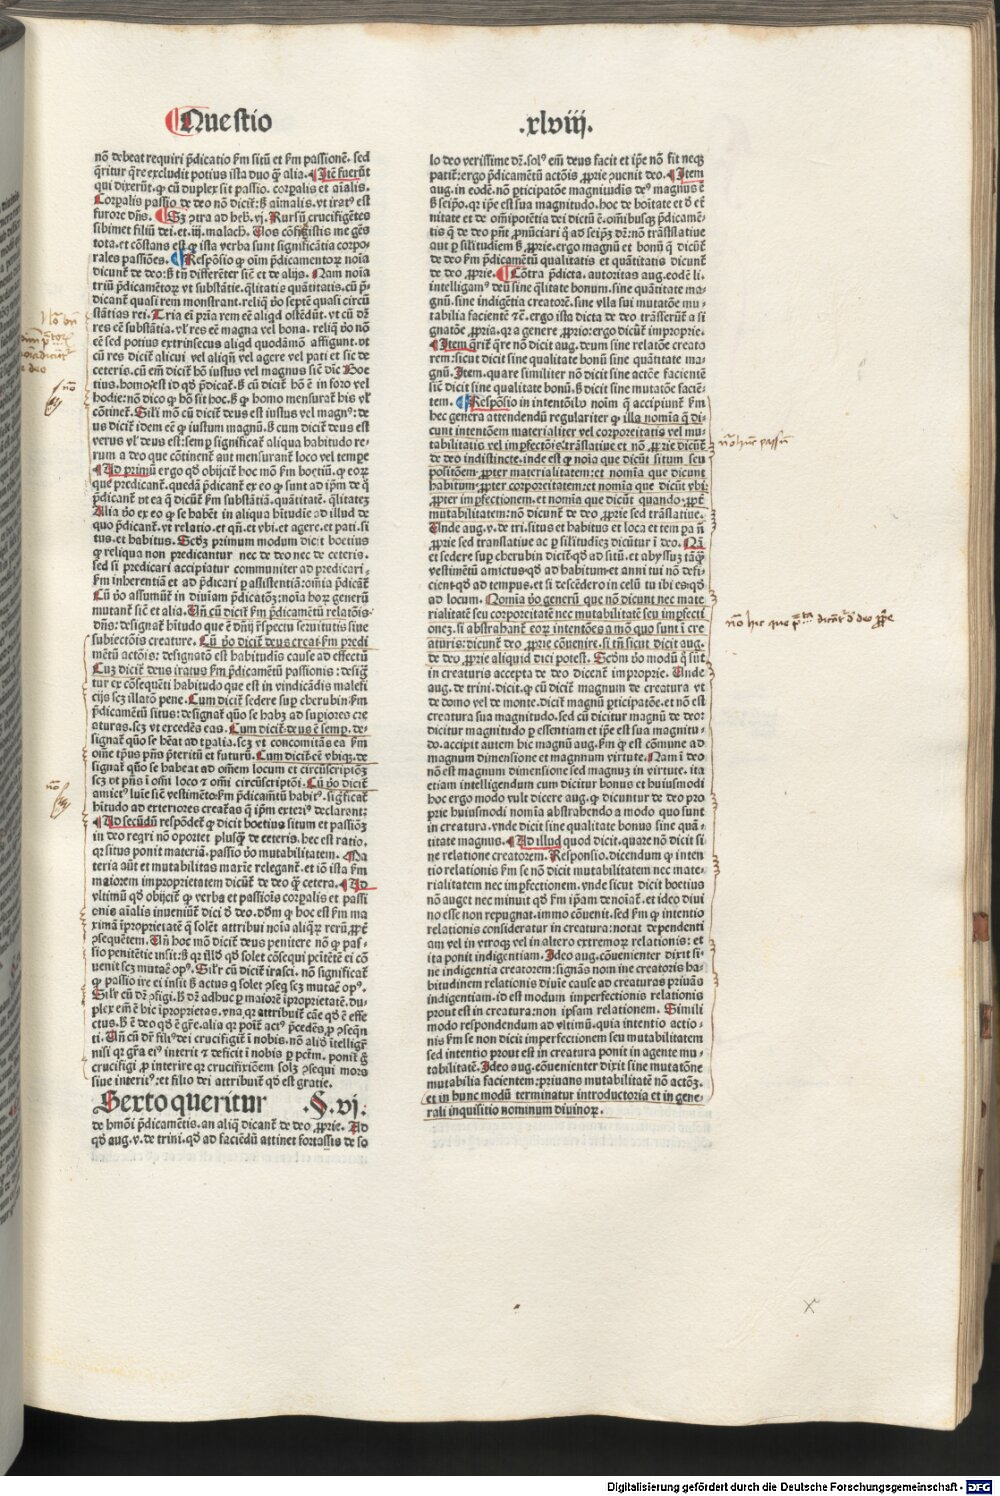 Questio .xlviij.
nō debeat requiri p̄dicatio ẜm sitū et ẜm passionē. sed
q̄ritur q̄re excludit potius ista duo q̄ alia. Itē fuerūt
qui dixerūt. ꝙ cū duplex sit passio. corꝑalis et aīalis.
Corꝑalis passio de deo nō dicit̄: ẜ aīmalis. vt irat⁹ est
furore dn̄s. Sꝫ ↄtra ad heb̄. vj. Rursū crucifigētes
sibimet filiū dei. et. iij. malach. Uos cōfigitis me gēs
tota. et cōstans est ꝙ ista verba sunt significātia corpo-
rales passiōes. Respōsio ꝙ oīm p̄dicamentoꝝ noīa
dicunt̄ de deo: ẜ tn̄ differēter sic̄ et de alijs. Nam noīa
triū p̄dicamētoꝝ vt substātie. q̄litatis quātitatis. cū p̄-
dicant̄ quasi rem monstrant. reliq̄ v̄o septē quasi circū
stātias rei.
res eē substātia. vl̓ res eē magna vel bona. reliq̄ v̄o nō
eē sed potius extrinsecus aliqd quodāmō affigunt. vt
cū res dicit̄ alicui vel aliqn̄ vel agere vel pati et sic de
ceteris. cū em̄ dicit̄ hō iustus vel magnus sic̄ dic̄ Boe
tius. homo est id qd p̄dicat̄. ẜ cū dicit̄ hō ē in foro vel
hodie: nō dico ꝙ hō sit hoc. ẜ ꝙ homo mensurat̄ his vl̓
cōtinet̄. Sil̓i mō cū dicit̄ deus est iustus vel magn⁹: de
us dicit̄ idem eē ꝙ iustum magnū. ẜ cum dicit̄ deus est
verus vl̓ deus est: semꝑ significat̄ aliqua habitudo re-
rum a deo que cōtinent̄ aut mensurant̄ loco vel tempe
Ad primū ergo qd obijcit̄ hoc mōn ẜm boetiū. ꝙ eoꝝ
que predicant̄. quedā p̄dicant̄ ex eo ꝙ sunt ad ip̄m de q̄
p̄dicant̄ vt ea q̄ dicūt̄ ẜm substātiā. quātitatē. q̄litateꝫ
Alia v̄o ex eo ꝙ se habēt in aliqua hītudie ad illud de
quo p̄dicant̄. vt relatio. et qn̄. et vbi. et agere. et pati. si
tus. et habitus. Scdꝫ primum modum dicit boetius
ꝙ reliqua non predicantur nec de deo nec de ceteris.
sed si predicari accipiatur communiter ad predicari.
ẜm inherentiā et ad p̄dicari ꝑ assistentiā: om̄ia p̄dicāt̄
Cū v̄o assumūt̄ in diuiam p̄dicatōꝫ: noīa hoꝝ generū
mutant̄ sic̄ et alia. Un̄ cū dicit̄ ẜm p̄dicamētū relatōis-
dn̄s: designat̄ hītudo que ē dn̄ij respectu seruitutis siue
subiectōis creature. Cū v̄o dicit̄ deus creat̄ ẜm predi
mētū actōis: designatō est habitudis cause ad effectū
Cuꝫ dicit̄ deus iratus ẜm p̄dicamētū passionis: desiḡ
tur ex cōsequēti habitudo que est in vindicādis malefi
cijs scꝫ illatō pene. Cum dicit̄ sedere suꝑ cherubin ẜm
p̄dicamētū situs: designat̄ quō se habꝫ ad suꝑiores cre
aturas. scꝫ vt excedēs eas. Cum dicit̄ deus ē semꝑ. de-
signat̄ quō se hēat ad tꝑalia. scꝫ vt concomitās ea ẜm
om̄e tp̄us pn̄s p̄teritū et futurū. Cum dicit̄ eē vbiqꝫ. de
signat̄ quō se habeat ad om̄em locum et circūscriptōꝫ
scꝫ vt pn̄s ī om̄i loco ⁊ om̄i circūscriptōi. Cū v̄o dicit̄
amict⁹ luīe sic̄ vestimēto: ẜm p̄dicamētū habit⁹. significat̄
hītudo ad exteriores creatās q̄ ip̄m exteri⁹ declarant̄
Ad secūdū respōdet̄ ꝙ dicit boetius situm et passiōꝫ
in deo reqri nō oportet plusq̄ de ceteris. hec est ratio.
qr situs ponit materiā. passio v̄o mutabilitatem. Ma
teria aūt et mutabilitas maxīe relegant̄. et iō ista ẜm
maiorem improprietatem dicūt̄ de deo q̄ cetera. Ad
vltimū qd obijcit̄ ꝙ verba et passiōis corꝑalis et passi
onis aīalis inueniūt̄ dici d̄ deo. dōm ꝙ hoc est ẜm ma
ximā īproprietatē q̄ solēt attribui noīa aliqꝝ rerū. ꝓpt̄
ↄsequētem. Un̄ hoc mō dicit̄ deus penitere nō ꝙ pas-
sio penitētie insit: ẜ qr illd qd solet cōsequi pēitētē ei cō
uenit scꝫ mutaē op⁹. Sil̓r cū dicit̄ irasci. nō significat̄
ꝙ passio ire ei insit ẜ actus q̄ solet ↄseq̄ scꝫ mutaē op⁹.
Sil̓r cū dr̄ ↄfigi. ẜ dr̄ adhuc ꝑ maiorē īproprietatē. du-
plex em̄ ē hic īproprietas. vna. qr attribuit̄ cāe qd ē effe
ctus. ẜ ē deo qd ē gr̄e. alia qr poīt̄ act⁹ p̄cedēs ꝓ ↄseq̄n
ti. Un̄ cū dr̄ fili⁹ dei crucifigit̄ ī nobis. nō aliō ītelligr̄
nisi qr gr̄a ei⁹ interit ⁊ deficit ī nobis ꝑ pctm̄. ponit̄ ḡ
crucifigi ꝓ interire qr crucifixiōem solꝫ ↄsequi mors
siue interit⁹: et filio dei attribuit̄ qd est gratie.
Sexto queritur .§. vj.
de hmōi p̄dicamētis. an aliq̄ dicant̄ de deo ꝓprie. Ad
qd aug. v. de trini. qd ad faciēdū attinet fortassis de so
lo deo verissime dr̄. sol⁹ em̄ deus facit et ip̄e nō fit neqꝫ
patit̄: ergo p̄dicamētū actōis ꝓprie ↄuenit deo. Item
aug. in eodē. nō ꝑticipatōe magnitudis de⁹ magnus ē
ẜ seip̄o. qr ip̄e est sua magnitudo. hoc de boītate et d̄ et̄
nitate et de om̄ipotētia dei dictū ē. om̄ibusqꝫ p̄dicamē-
tis q̄ de deo pn̄t ꝓnūciari q̄ ad seip̄ꝫ dr̄: nō trāstlatiue
aut ꝑ silitudiem ẜ ꝓprie. ergo magnū et bonū q̄ dicūt̄
de deo ẜm p̄dicamētū qualitatis et quātitatis dicunt̄
de deo ꝓprie. Cōtra p̄dicta. autoritas aug. eodē li.
intelligam⁹ deū sine q̄litate bonum. sine quātitate ma-
gnū. sine indigētia creatorē. sine vlla sui mutatōe mu-
tabilia facientē ⁊c̄. ergo ista dicta de deo trāsferūt̄ a si
gnatōe ꝓpria. qr a genere ꝓprio: ergo dicūt̄ improprie.
Item q̄rit̄ q̄re nō dicit aug. deum sine relatōe creato
rem: sicut dicit sine qualitate bonū sine quātitate ma-
gnū. Item. quare similiter nō dicit sine actōe facientē
sic̄ dicit sine qualitate bonū. ẜ dicit sine mutatōe faciē-
tem. Respōsio in intentōibꝰ noīm q̄ accipiunt̄ ẜm
hec genera attendendū regulariter ꝙ illa nomīa q̄ di-
cunt intentōem materialiter vel corporeitatis vel mu-
tabilitatis vel imperfectōis: trāslatiue et nō ꝓprie dicūt̄
de deo indistincte. inde est ꝙ noīa que dicūt situm seu
positōem. ꝓpter materialitatem: et nomīa que dicunt
habitum. ꝓpter corporeitatem: et nomīa que dicūt vbi:
ꝓpter imꝑfectionem. et nomīa que dicūt quando. ꝓpt̄
mutabilitatem: nō dicunt̄ de deo ꝓprie sed trāslatiue.
Unde aug. v. de tri. situs et habitus et loca et tempa n̄
ꝓprie sed translatiue ac ꝑ silitudieꝫ dicūtur ī deo. Nā
et sedere suꝑ cherubin dicit̄. qd ad sitū. et abyssuꝫ tāq̄ꝫ
vestimētū amictus. qd ad habitum. et anni tui nō defi-
cient. qd ad tempus. et si descēdero in celū tu ibi es: qd
ad locum. Nomīa v̄o generū que nō dicunt nec mate
rialitatē seu corporeitatē nec mutabilitatē seu imꝑfecti
oneꝫ. si abstrahant̄ eoꝝ intentōes a mō quo sunt ī cre
aturis: dicunt̄ de deo ꝓprie cōuenire. si tn̄ sicut dicit aug.
de deo ꝓprie aliquid dici potest. Scdm̄ v̄o modū q̄ sūt
in creaturis accepta de deo dicent̄ improprie. Unde
aug. de trini. dicit. ꝙ cū dicit̄ magnum de creatura vt
de domo vel de monte. dicit̄ magnū ꝑticipatōe. et nō est
creatura sua magnitudo. sed cū dicitur magnū de deo:
dicitur magnitudo ꝑ essentiam et ip̄e est sua magnitu-
do. accipit autem hic magnū aug. ẜm ꝙ est cōmune ad
magnum dimensione et magnum virtute. Nam ī deo
nō est magnum dimensione sed magnuꝫ in virtute. ita
etiam intelligendum cum dicitur bonus et huiusmodi
hoc ergo modo vult dicere aug. ꝙ dicuntur de deo pro
prie huiusmodi nomīa abstrahendo a modo quo sunt
in creatura. vnde dicit sine qualitate bonus sine quā-
titate magnus. Ad illud quod dicit. quare nō dicit si
ne relatione creatorem. Responsio. dicendum ꝙ inten
tio relationis ẜm se nō dicit mutabilitatem nec mate-
rialitatem nec imꝑfectionem. vnde sicut dicit boetius
nō auget nec minuit qd ẜm ip̄am denoīat̄. et ideo diui
no esse non repugnat. immo cōuenit. sed ẜm ꝙ intentio
relationis consideratur in creatura: notat dependenti
am vel in vtroqꝫ vel in altero extremoꝝ relationis: et
ita ponit indigentiam. Ideo aug. cōuenienter dixit si-
ne indigentia creatorem: signās nomine creatoris ha
bitudinem relationis diuīe cause ad creaturas priuās
indigentiam. id est modum imperfectionis relationis
prout est in creatura: non ipsam relationem. Simili
modo respondendum ad vltimū. quia intentio actio-
nis ẜm se non dicit imperfectionem seu mutabilitatem
sed intentio prout est in creatura ponit in agente mu-
tabilitatē. Ideo aug. cōuenienter dixit sine mutatōne
mutabilia facientem: priuans mutabilitatē nō actōꝫ.
et in hunc modū terminatur introductoria et in gene-
rali inquisitio nominum diuinoꝝ.
Digitalisierung gefördert durch die Deutsche Forschungsgemeinschaft - DFG